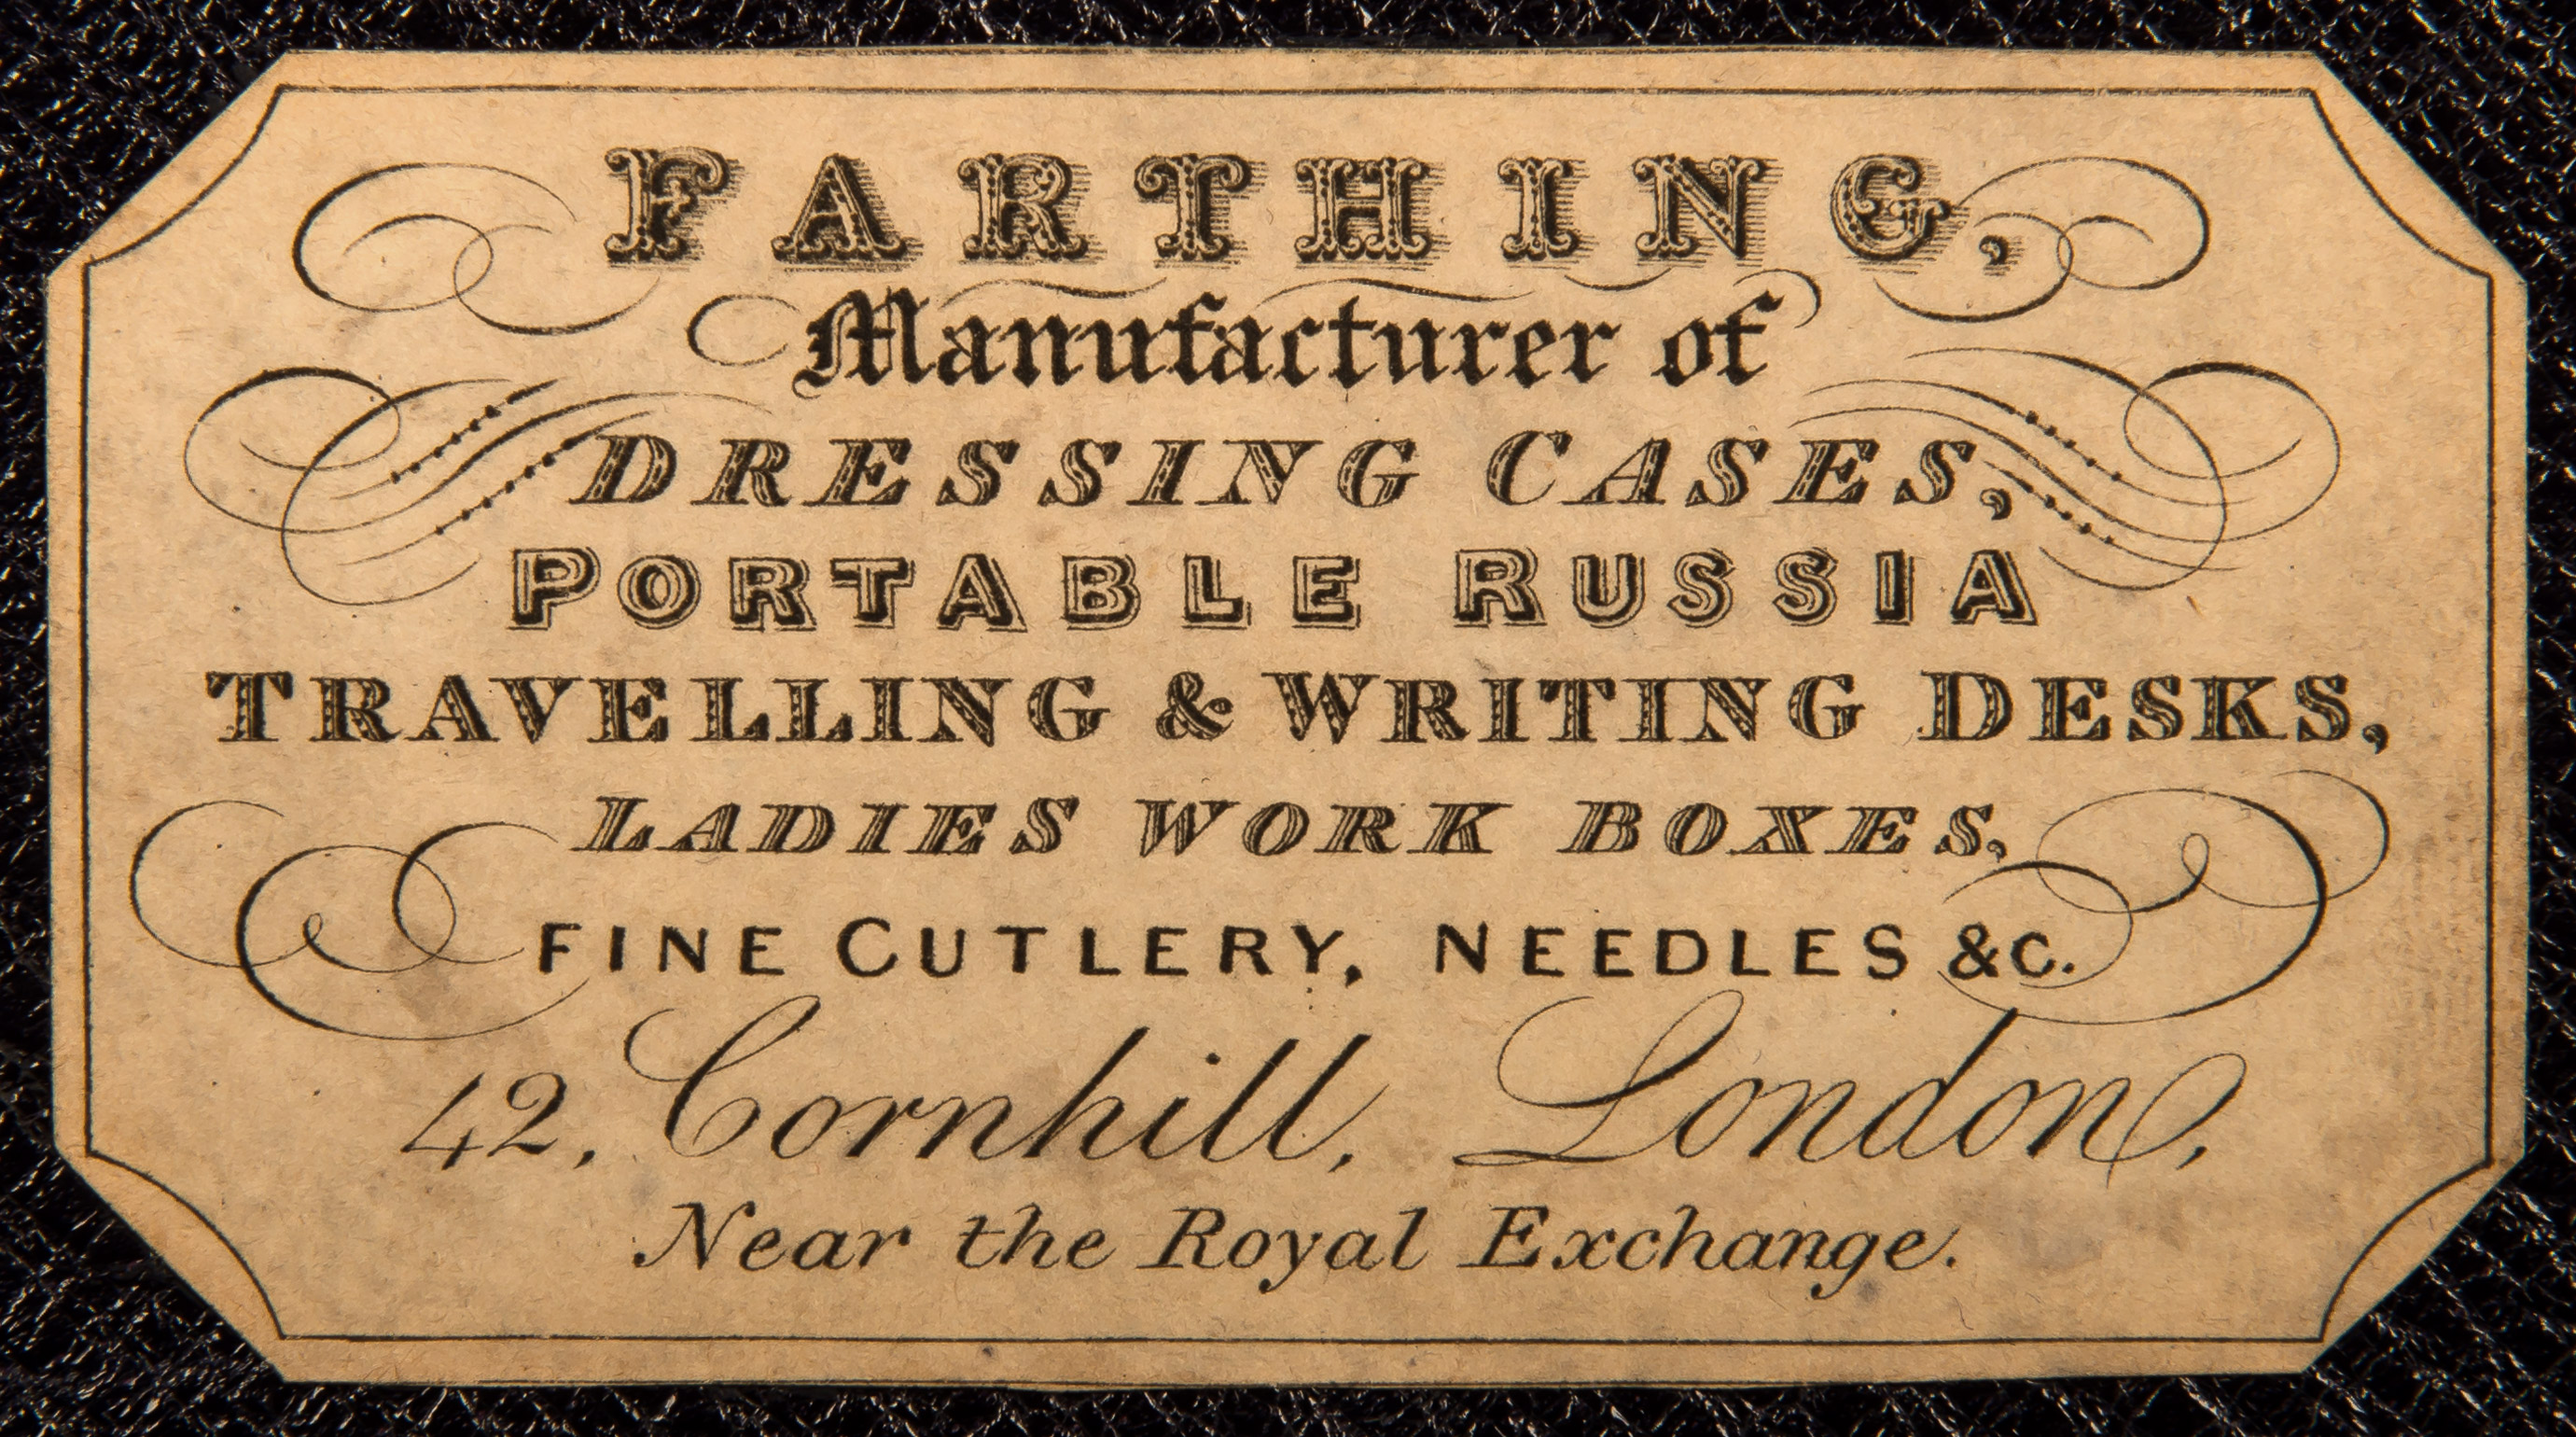 FARTHING,
Manufacturer of
DRESSING CASES,
PORTABLE RUSSIA
TRAVELLING & WRITING DESKS,
LADIES WORK BOXES,
FINE CUTLERY, NEEDLES &C.
42, Cornhill, London,
Near the Royal Exchange.